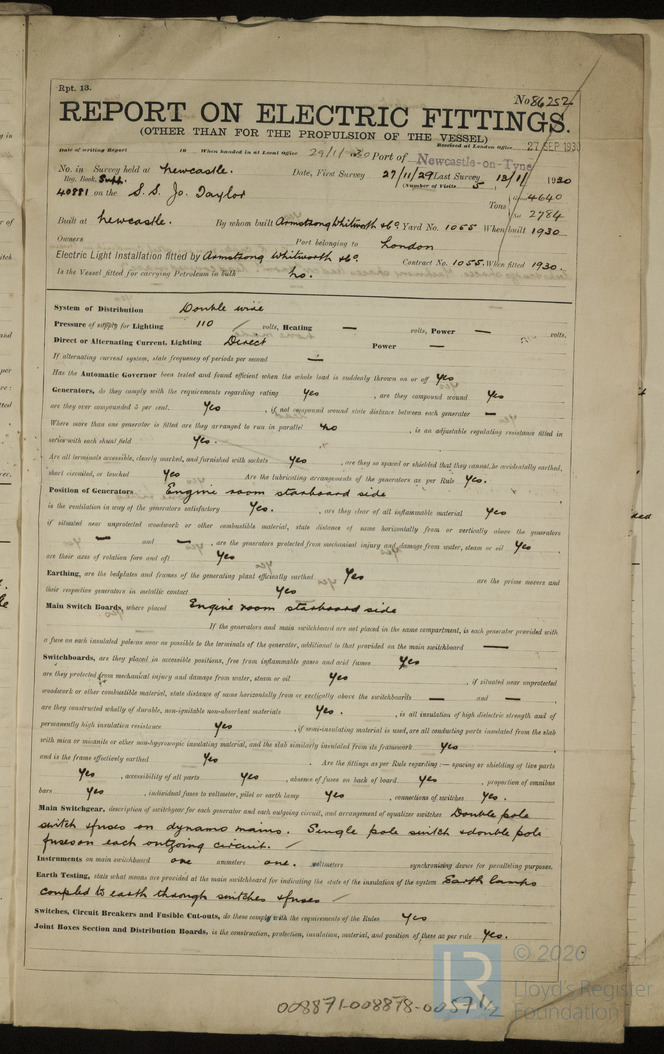 Rpt. 13.
No 86252
REPORT ON ELECTRIC FITTINGS.
(OTHER THAN FOR THE PROPULSION OF THE VESSEL)
Date of writing Report 19 When handed in at Local Office 29/11/30 Port of Newcastle-on-Tyne Received at London Office 27 SEP 1930
No. in Survey held at Newcastle. Date, First Survey 27/11/29 Last Survey 12/11/ 1930
Reg. Book. Supp. (Number of Visits 5)
40881 on the S.S. Jo. Taylor Tons 4640
2784
Built at Newcastle. By whom built Armstrong Whitworth & Co. Yard No. 1055 When built 1930
Owners Port belonging to London
Electric Light Installation fitted by Armstrong Whitworth & Co. Contract No. 1055. When fitted 1930.
Is the Vessel fitted for carrying Petroleum in bulk no.
System of Distribution Double wire
Pressure of supply for Lighting 110 volts, Heating — volts, Power — volts.
Direct or Alternating Current, Lighting Direct Power —
If alternating current system, state frequency of periods per second —
Has the Automatic Governor been tested and found efficient when the whole load is suddenly thrown on or off Yes
Generators, do they comply with the requirements regarding rating Yes , are they compound wound Yes
are they over compounded 5 per cent. Yes , if not compound wound state distance between each generator —
Where more than one generator is fitted are they arranged to run in parallel No , is an adjustable regulating resistance fitted in
series with each shunt field Yes.
Are all terminals accessible, clearly marked, and furnished with sockets Yes , are they so spaced or shielded that they cannot be accidentally earthed,
short circuited, or touched Yes Are the lubricating arrangements of the generators as per Rule Yes.
Position of Generators Engine room starboard side
is the ventilation in way of the generators satisfactory Yes. , are they clear of all inflammable material Yes
if situated near unprotected woodwork or other combustible material, state distance of same horizontally from or vertically above the generators
— and — , are the generators protected from mechanical injury and damage from water, steam or oil Yes ,
are their axes of rotation fore and aft Yes
Earthing, are the bedplates and frames of the generating plant efficiently earthed Yes are the prime movers and
their respective generators in metallic contact Yes
Main Switch Boards, where placed Engine room starboard side
If the generators and main switchboard are not placed in the same compartment, is each generator provided with
a fuse on each insulated pole as near as possible to the terminals of the generator, additional to that provided on the main switchboard —
Switchboards, are they placed in accessible positions, free from inflammable gases and acid fumes Yes ,
are they protected from mechanical injury and damage from water, steam or oil Yes , if situated near unprotected
woodwork or other combustible material, state distance of same horizontally from or vertically above the switchboards — and — ,
are they constructed wholly of durable, non-ignitable non-absorbent materials Yes. , is all insulation of high dielectric strength and of
permanently high insulation resistance Yes , if semi-insulating material is used, are all conducting parts insulated from the slab
with mica or micanite or other non-hygroscopic insulating material, and the slab similarly insulated from its framework Yes
and is the frame effectively earthed Yes Are the fittings as per Rule regarding :— spacing or shielding of live parts
Yes , accessibility of all parts Yes , absence of fuses on back of board Yes , proportion of omnibus
bars Yes , individual fuses to voltmeter, pilot or earth lamp Yes , connections of switches Yes.
Main Switchgear, description of switchgear for each generator and each outgoing circuit, and arrangement of equalizer switches Double pole
switch & fuses on dynamo mains. Single pole switch & double pole
fuses on each outgoing circuit.
Instruments on main switchboard one ammeters one. voltmeters synchronising device for paralleling purposes.
Earth Testing, state what means are provided at the main switchboard for indicating the state of the insulation of the system Earth lamps
coupled to earth through switches & fuses
Switches, Circuit Breakers and Fusible Cut-outs, do these comply with the requirements of the Rules Yes
Joint Boxes Section and Distribution Boards, is the construction, protection, insulation, material, and position of these as per rule Yes.
© 2020
Lloyd's Register
Foundation
008871-008878-0057 1/2